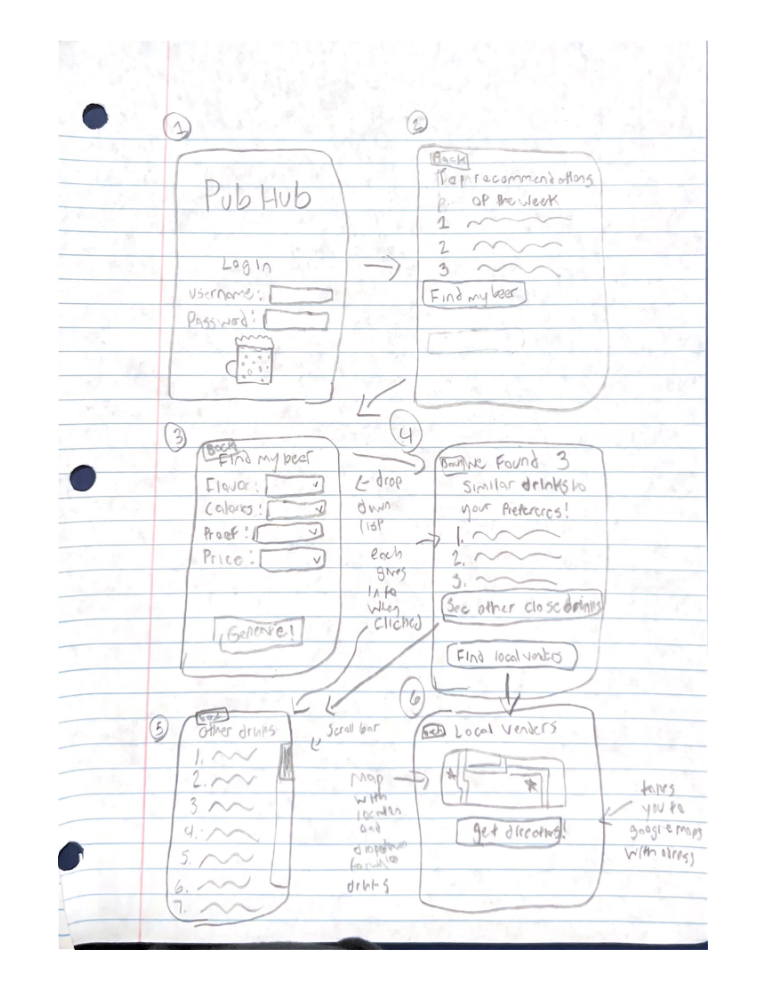 1
Pub Hub
Log In
username:
Password:
2
Back
Top recommendations
of the week
1
2
3
Find my beer
3
Back
Find my beer
Flavor:
Calories:
Proof:
Price:
Generate!
drop
down
list
each
gives
Info
when
clicked
4
Back We Found 3
Similar drinks to
your
1.
2.
3.
See other close drinks
Find local venders
5
Other drinks
1.
2.
3
4.
5.
6.
7.
Scroll bar
6
Local Venders
get directions!
Map
with
and
dropdown
drinks
takes
you to
google maps
with